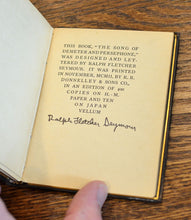 THIS BOOK, "THE SONG OF
DEMETER AND PERSEPHONE,"
WAS DESIGNED AND LET-
TERED BY RALPH FLETCHER
SEYMOUR. IT WAS PRINTED
IN NOVEMBER, MCMII, BY R. R.
DONNELLEY & SONS CO.,
IN AN EDITION OF 400
COPIES ON H.-M.
PAPER AND TEN
ON JAPAN
VELLUM
Ralph Fletcher Seymour